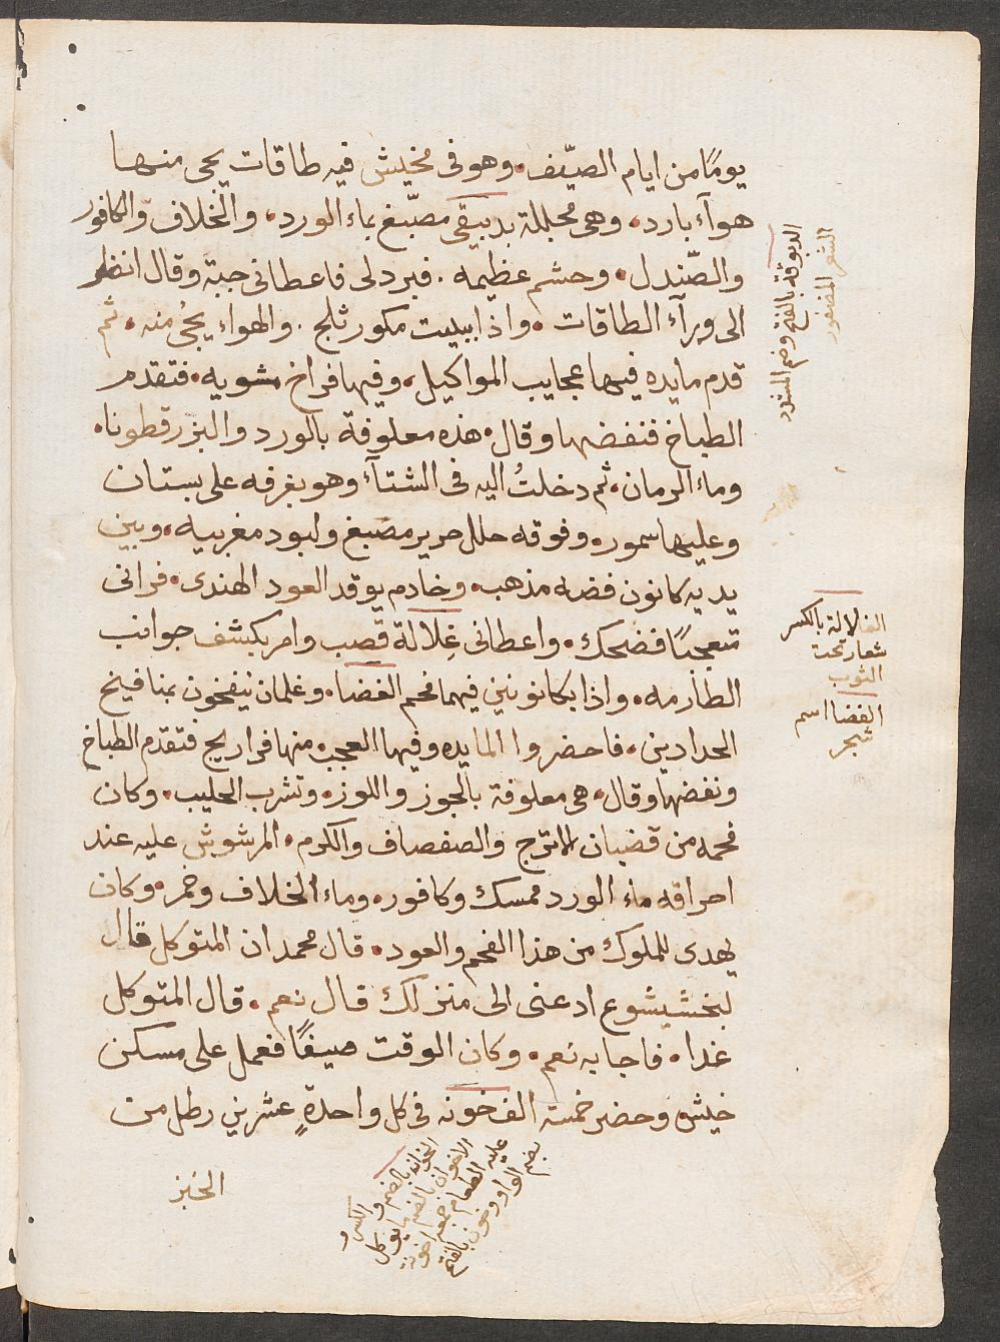 يومًا من ايام الصيّف. وهو فى مخيش فيه طاقات يجى منها
هوآء بارد. وهى مجللة بدبيقى مصبّغ بماء الورد. والخلاف والكافور
والصّندل. وحشم عظيمه. فبرد لى فاعطانى جبة وقال انظر
الى ورآء الطاقات. واذا ببيت مكور ثلج. والهواء يجُى منه. ثم
قدم مايده فيها عجايب المواكيل. وفيها فراخ مشويه. فتقدم
الطباخ فنفضها وقال. هذه معلوفة بالورد والبزرقطونا.
وماء الرمان. ثم دخلتُ اليه فى الشتآء وهو بغرفه على بستان
وعليها سمور. وفوقه حلل حرير مصبغ ولبود مغربيه. وبين
يديه كانون فضه مذهب. وخادم يوقد العود الهندى. فرانى
متعجبًا فضحك. واعطانى غِلالة قصب وامر بكشف جوانب
الطارمه. واذا بكانونين فيهما فحم الغضا. وغلمان ينفخون بمنافيخ
الحدادين. فاحضروا المايده وفيها العجب. منها فراريج فتقدم الطباخ
ونفضها وقال. هى معلوفة بالجوز واللوز. وتشرب الحليب. وكان
فحمه من قضبان الاترج والصفصاف والكرم. المرشوش عليه عند
احراقه ماء الورد ممسك وكافور. وماء الخلاف وخمر. وكان
يهدى للملوك من هذا الفحم والعود. قال محمد ان المتوكل قال
لبخشيشوع ادعنى الى منزلك قال نعم. قال المتوكل
غدا. فاجابه نعم. وكان الوقت صيفًا فعمل على مسكن
خيش وحضر خمسة الف خونه فى كل واحدةٍ عشرين رطل من
الخبز
الدبوقة بالفتح وضم المشدد
الشعر المضفور
الغلالة بالكسر
شعار تحت
الثوب
الغضا اسم
شجر
الخوانه بالضم والكسر و
الاخوان بالضم ما يوكل
عليه الطعام جمعه اخونه
بضم الواو وخون بالفتح